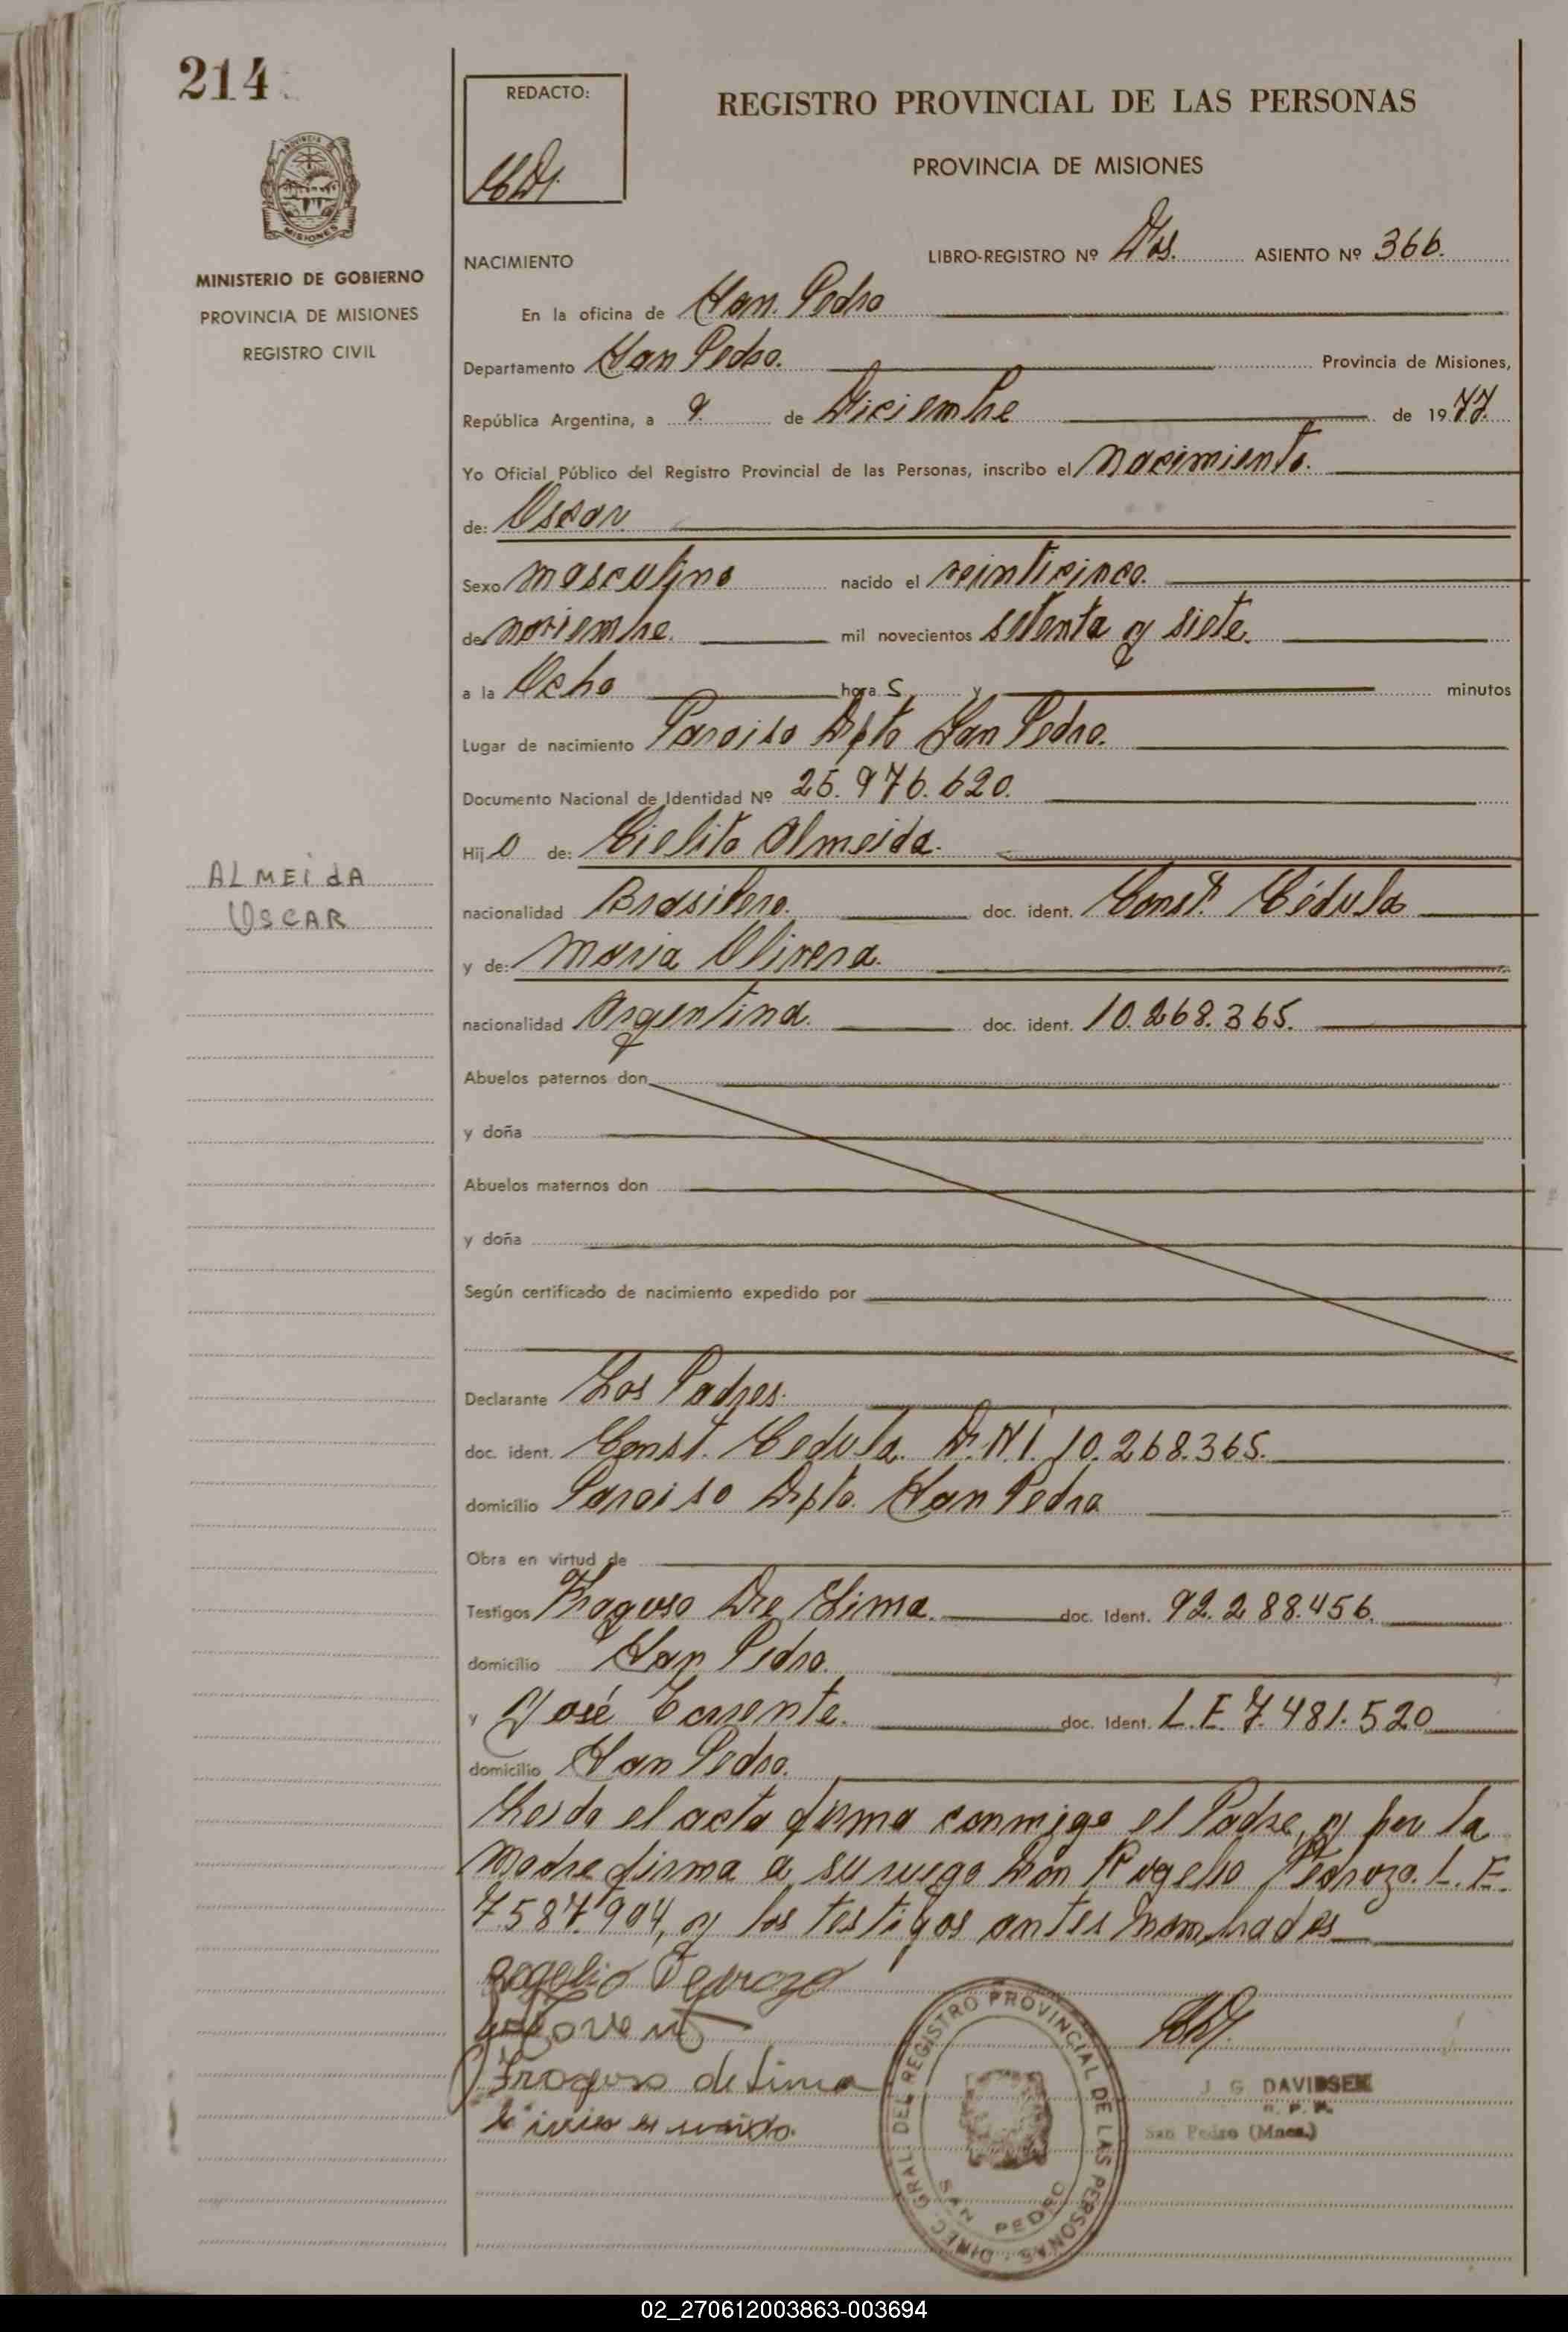 214
REDACTO:
REGISTRO PROVINCIAL DE LAS PERSONAS
PROVINCIA DE MISIONES
PROVINCIA DE
MISIONES
MINISTERIO DE GOBIERNO
PROVINCIA DE MISIONES
REGISTRO CIVIL
NACIMIENTO LIBRO-REGISTRO Nº Dos. ASIENTO Nº 366.
En la oficina de San Pedro
Departamento San Pedro. Provincia de Misiones,
República Argentina, a 9. de Diciembre de 1977.
Yo Oficial Público del Registro Provincial de las Personas, inscribo el nacimiento.
de: Oscar
Sexo masculino nacido el veinticinco.
de noviembre. mil novecientos setenta y siete.
a la Ocho hora s y minutos
Lugar de nacimiento Paraiso Dpto San Pedro.
Documento Nacional de Identidad Nº 25.976.620.
Hij o de: Cielito Almeida.
ALMEidA
OSCAR
nacionalidad Brasilero. doc. ident. Const. Cédula
y de: Maria Olivera.
nacionalidad Argentina. doc. ident. 10.268.365.
Abuelos paternos don
y doña
Abuelos maternos don
y doña
Según certificado de nacimiento expedido por
Declarante Los Padres.
doc. ident. Const. Cedula. D.N.I. 10.268.365.
domicilio Paraiso Dpto. San Pedro
Obra en virtud de
Testigos Fragoso De Lima. doc. Ident. 92.288.456.
domicilio San Pedro.
y José Corrente. doc. Ident. L.E. 7.481.520
domicilio San Pedro.
Leida el acta firma conmigo el Padre, y por la
Madre firma a su ruego Don Rogelio Pedrozo. L.E.
7.587.904, y los testigos antes nombrados
Rogelio Pedrozo
Fragoso de Lima
DIREC. GRAL. DEL REGISTRO PROVINCIAL DE LAS PERSONAS
SAN PEDRO
J G DAVIDSEN
San Pedro (Mnes.)
02_270612003863-003694